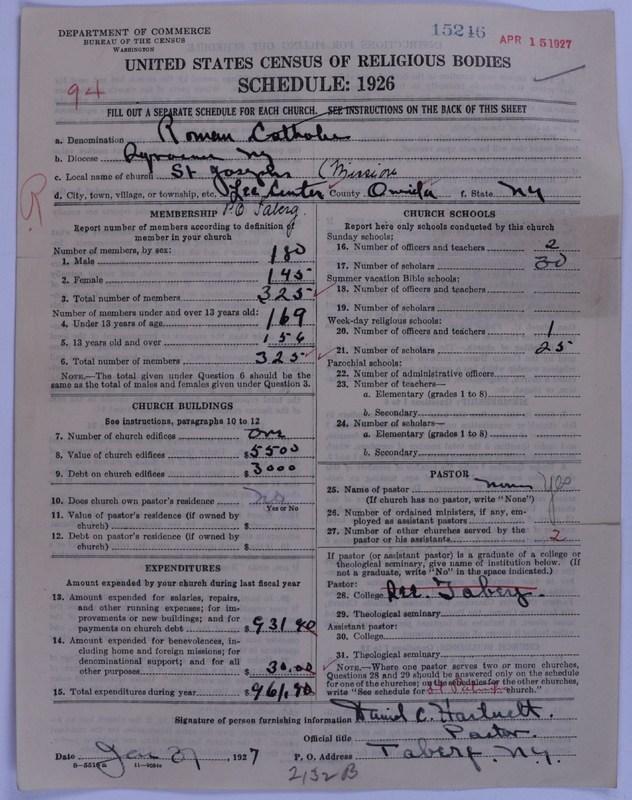 DEPARTMENT OF COMMERCE
BUREAU OF THE CENSUS
WASHINGTON
15216
APR 15 1927
UNITED STATES CENSUS OF RELIGIOUS BODIES
SCHEDULE: 1926
94
FILL OUT A SEPARATE SCHEDULE FOR EACH CHURCH. SEE INSTRUCTIONS ON THE BACK OF THIS SHEET
a. Denomination Roman Catholic
b. Diocese Syracuse NY
c. Local name of church St Josephs (Mission
d. City, town, village, or township, etc. Lee Center County Oneida f. State NY
R
P.O Taberg.
MEMBERSHIP
Report number of members according to definition of member in your church
Number of members, by sex:
1. Male 180
2. Female 145
3. Total number of members 325
Number of members under and over 13 years old:
4. Under 13 years of age 169
5. 13 years old and over 156
6. Total number of members 325
NOTE.—The total given under Question 6 should be the same as the total of males and females given under Question 3.
CHURCH BUILDINGS
See instructions, paragraphs 10 to 12
7. Number of church edifices one
8. Value of church edifices $5500
9. Debt on church edifices $3000
10. Does church own pastor's residence no
Yes or No
11. Value of pastor's residence (if owned by church) $
12. Debt on pastor's residence (if owned by church) $
EXPENDITURES
Amount expended by your church during last fiscal year
13. Amount expended for salaries, repairs, and other running expenses; for improvements or new buildings; and for payments on church debt $931.80
14. Amount expended for benevolences, including home and foreign missions; for denominational support; and for all other purposes $30.00
15. Total expenditures during year $961.80
CHURCH SCHOOLS
Report here only schools conducted by this church
Sunday schools:
16. Number of officers and teachers 2
17. Number of scholars 30
Summer vacation Bible schools:
18. Number of officers and teachers
19. Number of scholars
Week-day religious schools:
20. Number of officers and teachers 1
21. Number of scholars 25
Parochial schools:
22. Number of administrative officers
23. Number of teachers—
a. Elementary (grades 1 to 8)
b. Secondary
24. Number of scholars—
a. Elementary (grades 1 to 8)
b. Secondary
PASTOR
25. Name of pastor none Yes
(If church has no pastor, write "None")
26. Number of ordained ministers, if any, employed as assistant pastors
27. Number of other churches served by the pastor or his assistants 2
If pastor (or assistant pastor) is a graduate of a college or theological seminary, give name of institution below. (If not a graduate, write "No" in the space indicated.)
Pastor:
28. College See Taberg.
29. Theological seminary
Assistant pastor:
30. College
31. Theological seminary
NOTE.—Where one pastor serves two or more churches, Questions 28 and 29 should be answered only on the schedule for one of the churches; on the schedules for the other churches, write "See schedule for St Patricks church."
Signature of person furnishing information Daniel C. Hartnett.
Official title Pastor.
Date Jan 31, 1927
P. O. Address Taberg. N.Y.
8—5516a 11—4084a
2132 B